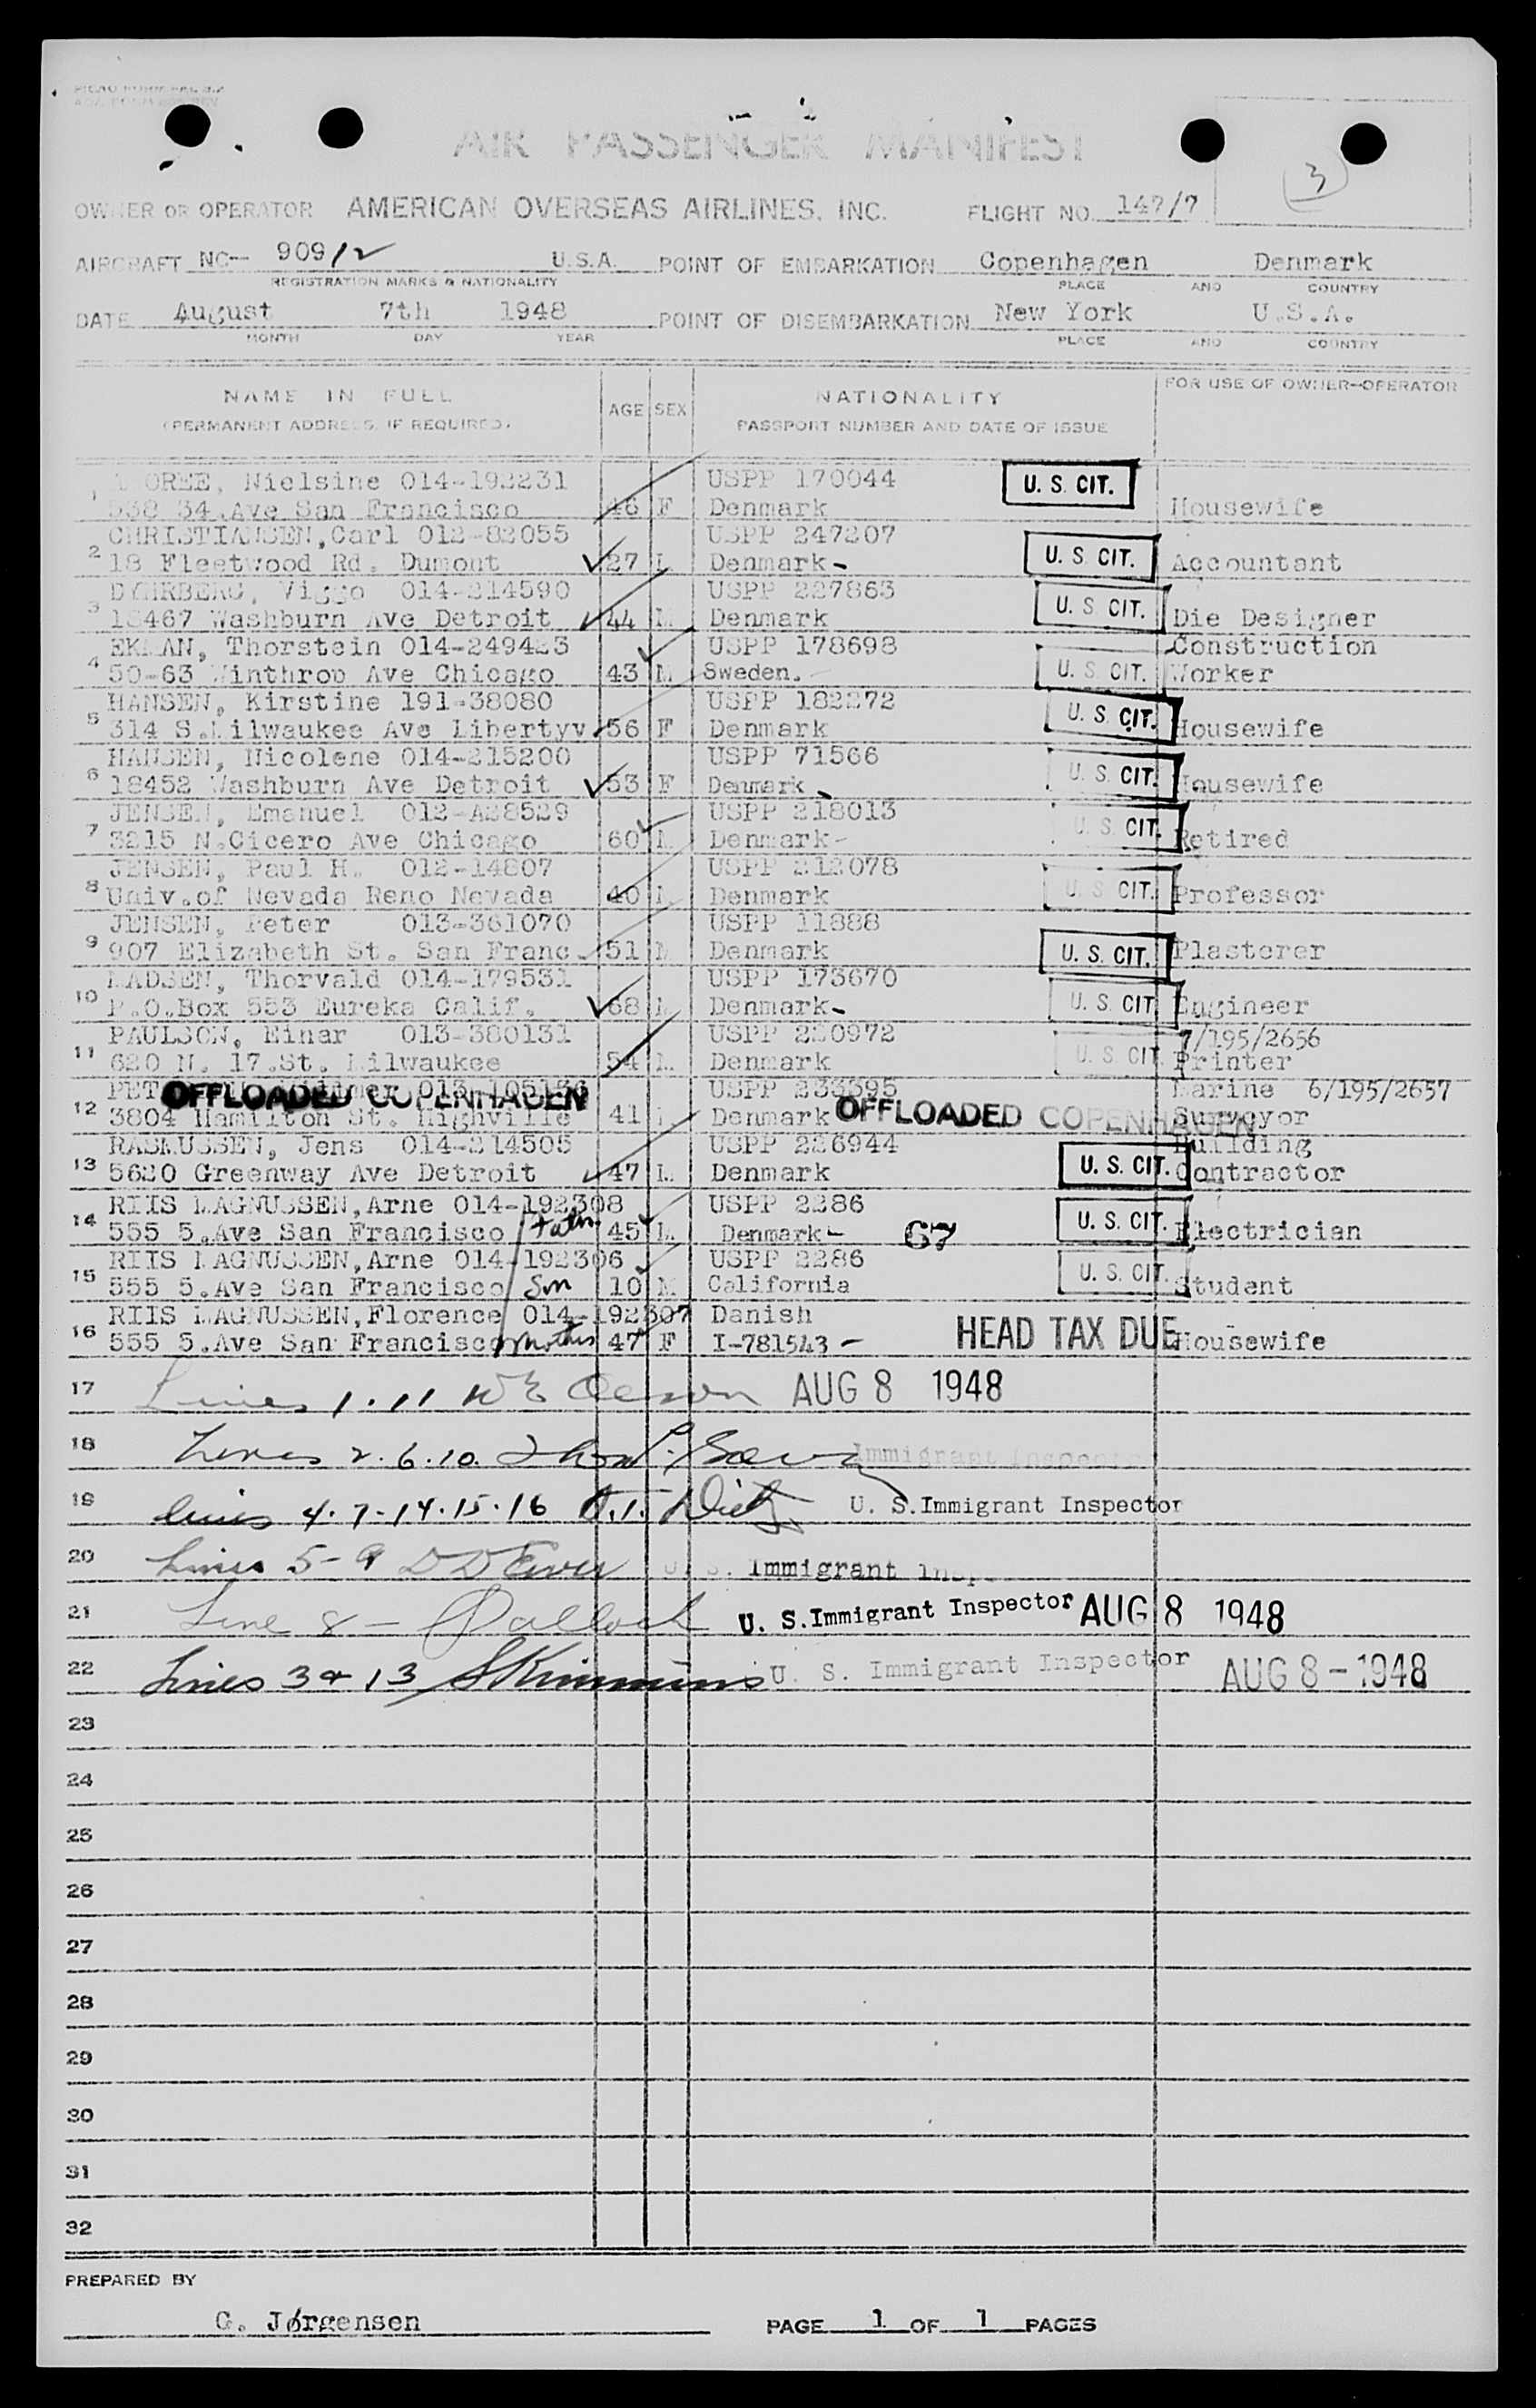 AIR PASSENGER MANIFEST
3
OWNER OR OPERATOR AMERICAN OVERSEAS AIRLINES, INC. FLIGHT NO. 147/7
AIRCRAFT NC- 909/2 U.S.A. POINT OF EMBARKATION Copenhagen Denmark
REGISTRATION MARKS & NATIONALITY PLACE AND COUNTRY
DATE August 7th 1948 POINT OF DISEMBARKATION New York U.S.A.
MONTH DAY YEAR PLACE AND COUNTRY
NAME IN FULL AGE SEX NATIONALITY FOR USE OF OWNER-OPERATOR
(PERMANENT ADDRESS, IF REQUIRED) PASSPORT NUMBER AND DATE OF ISSUE
Nielsine 014-192231 USPP 170044 U. S. CIT.
1 538 34.Ave San Francisco 46 F Denmark Housewife
CHRISTIANSEN,Carl 012-82055 USPP 247207
2 18 Fleetwood Rd. Dumont 27 M Denmark- U. S. CIT. Accountant
DYHRBERG, Viggo 014-214590 USPP 227863
3 18467 Washburn Ave Detroit 44 M Denmark U. S. CIT. Die Designer
EKMAN, Thorstein 014-249423 USPP 178698 Construction
4 50-63 Winthrop Ave Chicago 43 M Sweden. U. S. CIT. Worker
HANSEN, Kirstine 191-38080 USPP 182272
5 314 S.Milwaukee Ave Libertyv 56 F Denmark U. S. CIT. Housewife
HANSEN, Nicolene 014-215200 USPP 71566
6 18452 Washburn Ave Detroit 53 F Denmark U. S. CIT. Housewife
JENSEN, Emanuel 012-A28529 USPP 218013
7 3215 N.Cicero Ave Chicago 60 M Denmark- U. S. CIT. Retired
JENSEN, Paul H. 012-14807 USPP 212078
8 Univ.of Nevada Reno Nevada 40 M Denmark U. S. CIT. Professor
JENSEN, Peter 013-361070 USPP 11888
9 907 Elizabeth St. San Franc. 51 M Denmark U. S. CIT. Plasterer
MADSEN, Thorvald 014-179531 USPP 173670
10 P.O.Box 553 Eureka Calif. 68 M Denmark- U. S. CIT. Engineer
PAULSON, Einar 013-380131 USPP 220972 7/195/2656
11 620 N. 17.St. Milwaukee 54 M Denmark U. S. CIT. Printer
OFFLOADED COPENHAGEN 013-105136 USPP 233395 Marine 6/195/2657
12 3804 Hamilton St. Highville 41 Denmark OFFLOADED COPENHAGEN Surveyor
RASMUSSEN, Jens 014-214505 USPP 226944 Building
13 5620 Greenway Ave Detroit 47 M Denmark U. S. CIT. Contractor
RIIS MAGNUSSEN,Arne 014-192308 USPP 2286
14 555 5.Ave San Francisco 45 M Denmark- 67 U. S. CIT. Electrician
RIIS MAGNUSSEN,Arne 014-192306 USPP 2286
15 555 5.Ave San Francisco Son 10 M California U. S. CIT. Student
RIIS MAGNUSSEN,Florence 014-192307 Danish
16 555 5.Ave San Francisco Mother 47 F I-781543 - HEAD TAX DUE Housewife
17 Lines 1.11 AUG 8 1948
18 Lines 2.6.10. Immigrant Inspector
19 lines 4.7-14.15.16 U. S.Immigrant Inspector
20 Lines 5-9 U. S. Immigrant Insp
21 Line 8 - U. S.Immigrant Inspector AUG 8 1948
22 Lines 3 & 13 U. S. Immigrant Inspector AUG 8-1948
23
24
25
26
27
28
29
30
31
32
PREPARED BY
G. Jørgensen PAGE 1 OF 1 PAGES